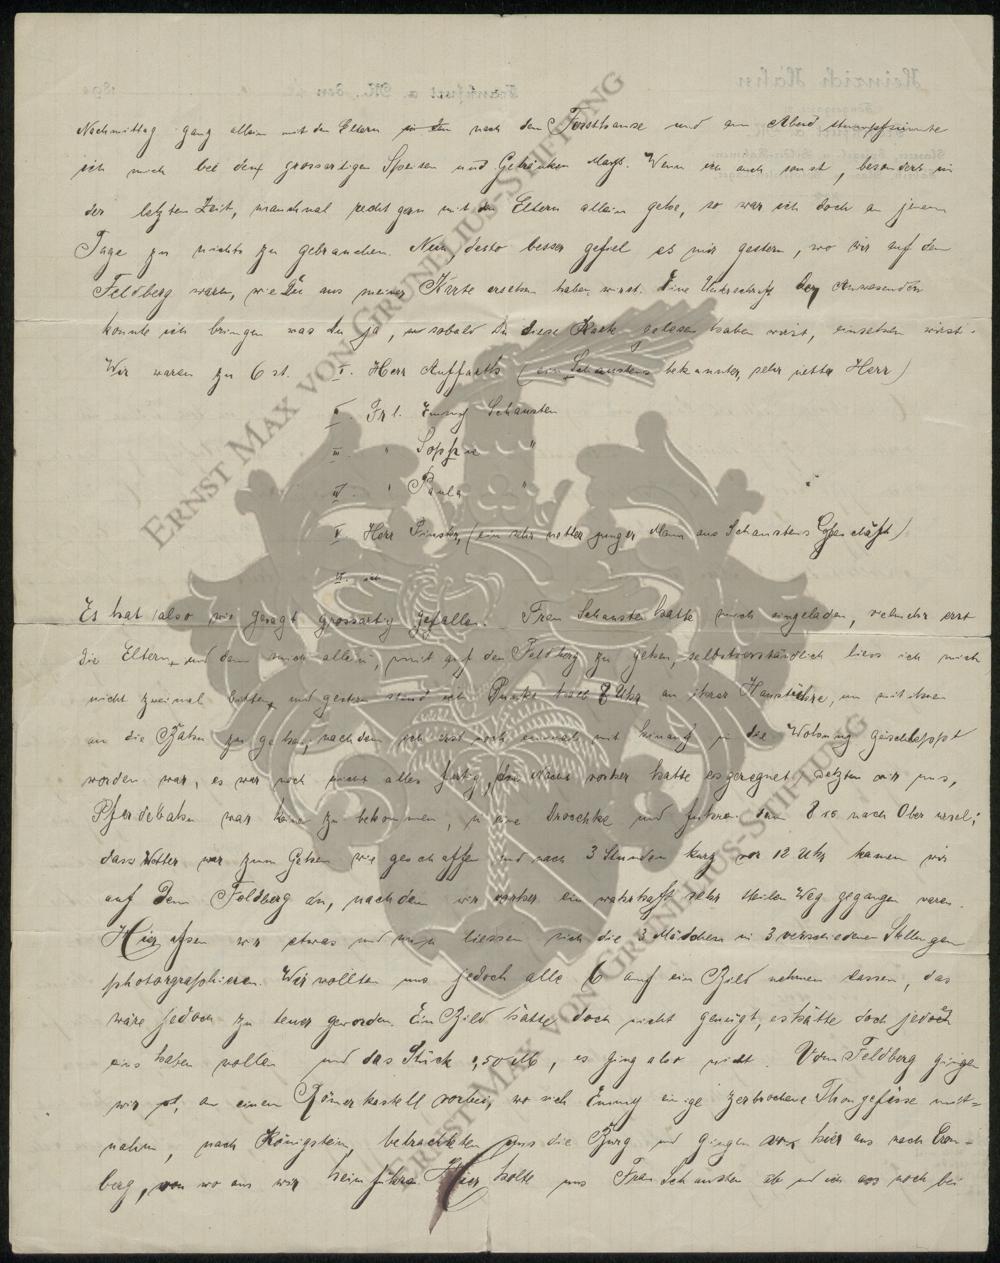 Nachmittag ging allein mit den Eltern nach dem Forsthause und am Abend stumpfsinnte
ich mich bei den grossartigen Speisen und Getränken Wenn ich auch sonst, besonders in
der letzten Zeit, manchmal recht gern mit den Eltern allein gehe, so war ich doch an jenem
Tage zu nichts zu gebrauchen. Nun, desto besser gefiel es mir gestern, wo wir auf dem
Feldberg waren, wie Du aus meiner Karte ersehen haben wirst. Eine Unterschrift der Anwesenden
konnte ich bringen was Du ja, sobald Du diese Karte gelesen haben wirst, einsehen wirst.
Wir waren zu 6 st. I. Herr Auffarth (ein Schanstens bekannter, sehr netter Herr)
II Frl. Emmy Schansten
III. " Sophie "
IV. " Paula "
V Herr (ein sehr netter junger Mann aus Schanstens Geschäft)
VI. ich
Es hat also wie gesagt grossartig gefallen. Frau Schansten hatte mich eingeladen, vielmehr erst
die Eltern, und dann mich allein, mit auf den Feldberg zu gehen, selbstverständlich liess ich mich
nicht zweimal bitten, und gestern stand ich Punkt halb 8 Uhr an ihrer Hausthüre, um mit ihnen
an die Bahn zu gehen, nachdem ich erst noch einmal mit hinauf in die Wohnung geschleppt
worden war, es war noch nicht alles fertig, die Nacht vorher hatte es geregnet setzten wir uns,
Pferdebahn war keine zu bekommen, in eine Droschke und fuhren dann 8 10 nach Ober ursel;
dass Wetter war zum Gehen wie geschaffen und nach 3 Stunden kurz vor 12 Uhr kamen wir
auf dem Feldberg an, nachdem wir vorher ein wahrhaft sehr steilen Weg gegangen waren.
Hier assen wir etwas und liessen sich die 3 Mädchen in 3 verschiedenen Stellungen
photorgraphieren. Wir wollten uns jedoch alle 6 auf ein Bild nehmen lassen, das
wäre jedoch zu teuer geworden. Ein Bild hätte doch nicht genügt, es hätte doch jedoch
eins haben wollen und das Stück 1,50 M, es ging also nicht. Vom Feldberg gingen
wir an einem Römerkastell vorbei, wo sich Emmy einige zerbrochene Thongefässe mit=
nahm, nach Königstein, betrachteten uns die Burg und gingen von hier aus nach Cron-
berg, von wo aus wir heimfuhren Hier holte uns Frau Schansten ab und ich ass noch bei
ERNST MAX VON GRUNELIUS-STIFTUNG
ERNST MAX VON GRUNELIUS-STIFTUNG